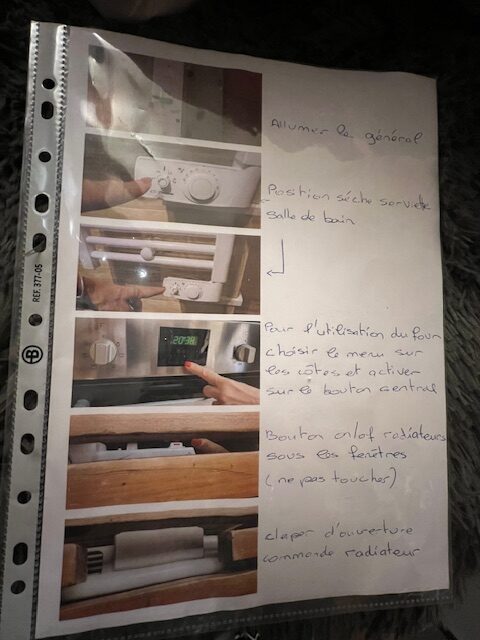 Allumer le général
Position sèche serviette
salle de bain
Pour l'utilisation du four
choisir le menu sur
les côtés et activer
sur le bouton central
Bouton on/of radiateurs
sous les fenêtres
(ne pas toucher)
claper d'ouverture
commande radiateur
REF. 377-05